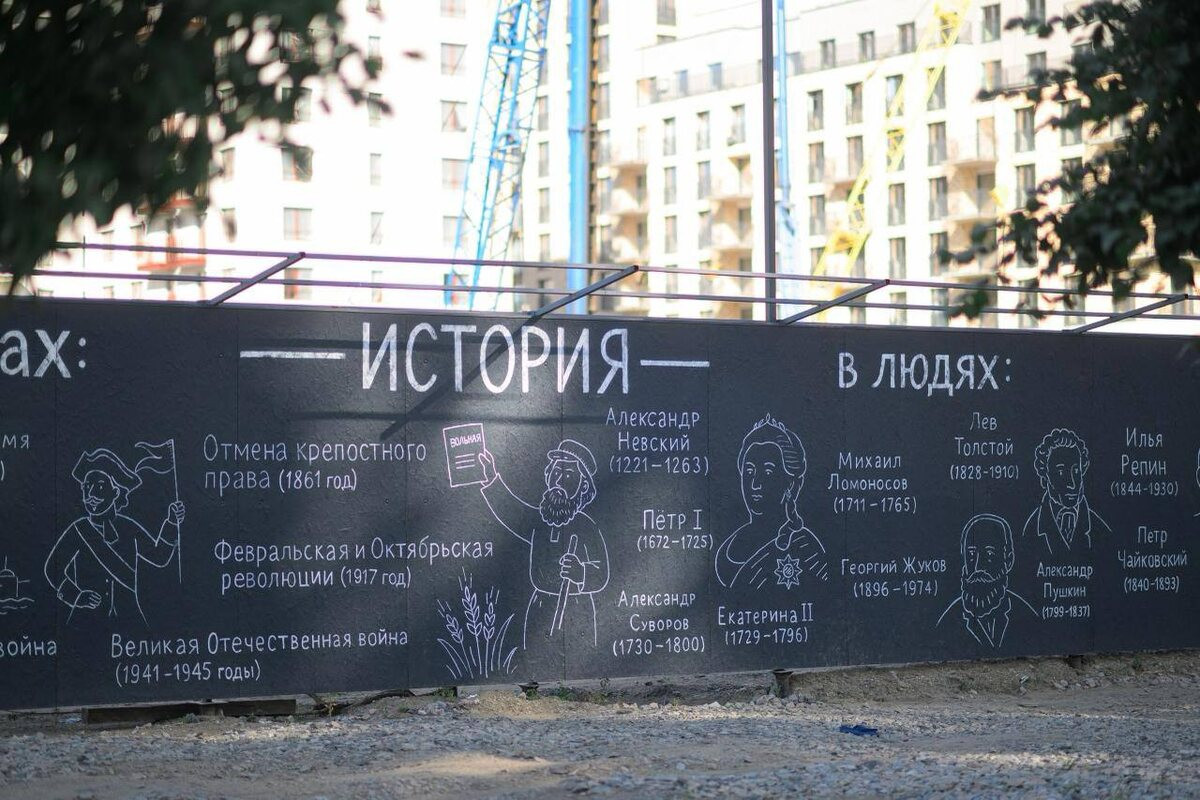 ах:
— ИСТОРИЯ —
в людях:
мя
)
Отмена крепостного
права (1861 год)
Февральская и Октябрьская
революции (1917 год)
война
Великая Отечественная война
(1941-1945 годы)
ВОЛЬНАЯ
Александр
Невский
(1221-1263)
Пётр I
(1672-1725)
Александр
Суворов
(1730-1800)
Екатерина II
(1729-1796)
Михаил
Ломоносов
(1711-1765)
Георгий Жуков
(1896-1974)
Лев
Толстой
(1828-1910)
Александр
Пушкин
(1799-1837)
Илья
Репин
(1844-1930)
Петр
Чайковский
(1840-1893)